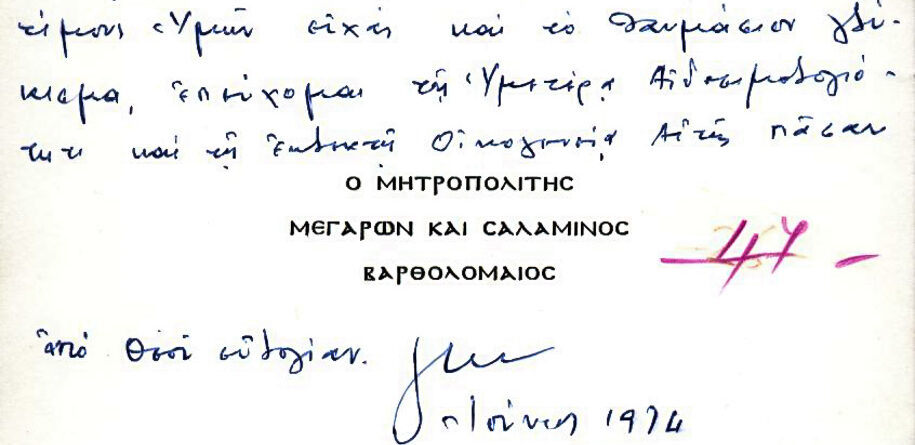 τίμους Ὑμῶν εὐχάς καὶ τὸ θαυμάσιον γλύ-
κισμα, ἐπεύχομαι τῇ Ὑμετέρᾳ Αἰδεσιμολογιό-
τητι καὶ τῇ ἐκλεκτῇ Οἰκογενείᾳ Αὐτῆς πᾶσαν
Ο ΜΗΤΡΟΠΟΛΙΤΗΣ
ΜΕΓΑΡΩΝ ΚΑΙ ΣΑΛΑΜΙΝΟΣ
ΒΑΡΘΟΛΟΜΑΙΟΣ
47 -
ἀπό Θεοῦ εὐλογίαν.
Ἰούνιος 1974